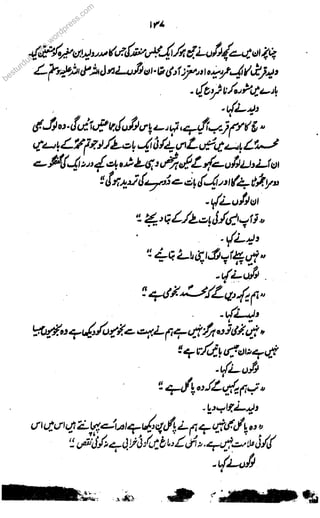 ۱۳۷
besturdubooks.wordpress.com
چنانچہ ان میں سے کچھ لوگوں نے جمع ہو کر ایک مجلس منعقد کی جس کا صدر ولید ابن مغیرہ کو متعین کیا۔
ولید قریش کا ایک عمر رسیدہ اور معزز آدمی تھا۔ ان لوگوں نے رسول اللہ صلی اللہ علیہ وسلم کے
بارے میں مشورہ کرنا شروع کیا۔
ولید نے کہا۔
"حج کا موسم قریب آگیا ہے، تمہارے پاس لوگوں کی جماعتیں آئیں گی۔ وہ لوگ بھی
محمد کے بارے میں سنیں گے اس لئے کوئی ایک بات طے کر لو جو تم محمد کے بارے میں
ان آنے والے لوگوں سے کہو گے لیکن ہر شخص وہی طے شدہ بات کہے ورنہ ایک کی گفتگو سے
دوسرا جھوٹا بنے گا اور ایک کی بات سے دوسرے کی تردید ہوگی"
ان لوگوں نے کہا۔
"تو آپ ایسی کوئی بات طے کر کے بتا دیجئے"
ولید نے کہا۔
"نہیں پہلے آپ لوگ اپنی رائے بتائیے"
لوگوں نے کہا۔
"ہم یہ کہہ دیں گے کہ محمد نجومی ہے"
ولید نے کہا۔
"نہیں نجومی تو وہ ہرگز نہیں ہے ہم نے بہت سے نجومیوں کو دیکھا ہے وہ نجومیوں جیسا
نہیں ہے نہ ان جیسی باتیں کرتا ہے"
لوگوں نے کہا۔
"تب ہم یہ کہیں گے کہ وہ پاگل ہے"
ولید نے جواب دیا۔
"وہ پاگل بھی نہیں ہے ہم نے پاگل پن دیکھا ہے اور اسے پہچانتے ہیں اس میں اس
کی کوئی علامت نہیں ہے۔ نہ اس کے دماغ میں کوئی خرابی ہے نہ کوئی نقص"
لوگوں نے کہا۔